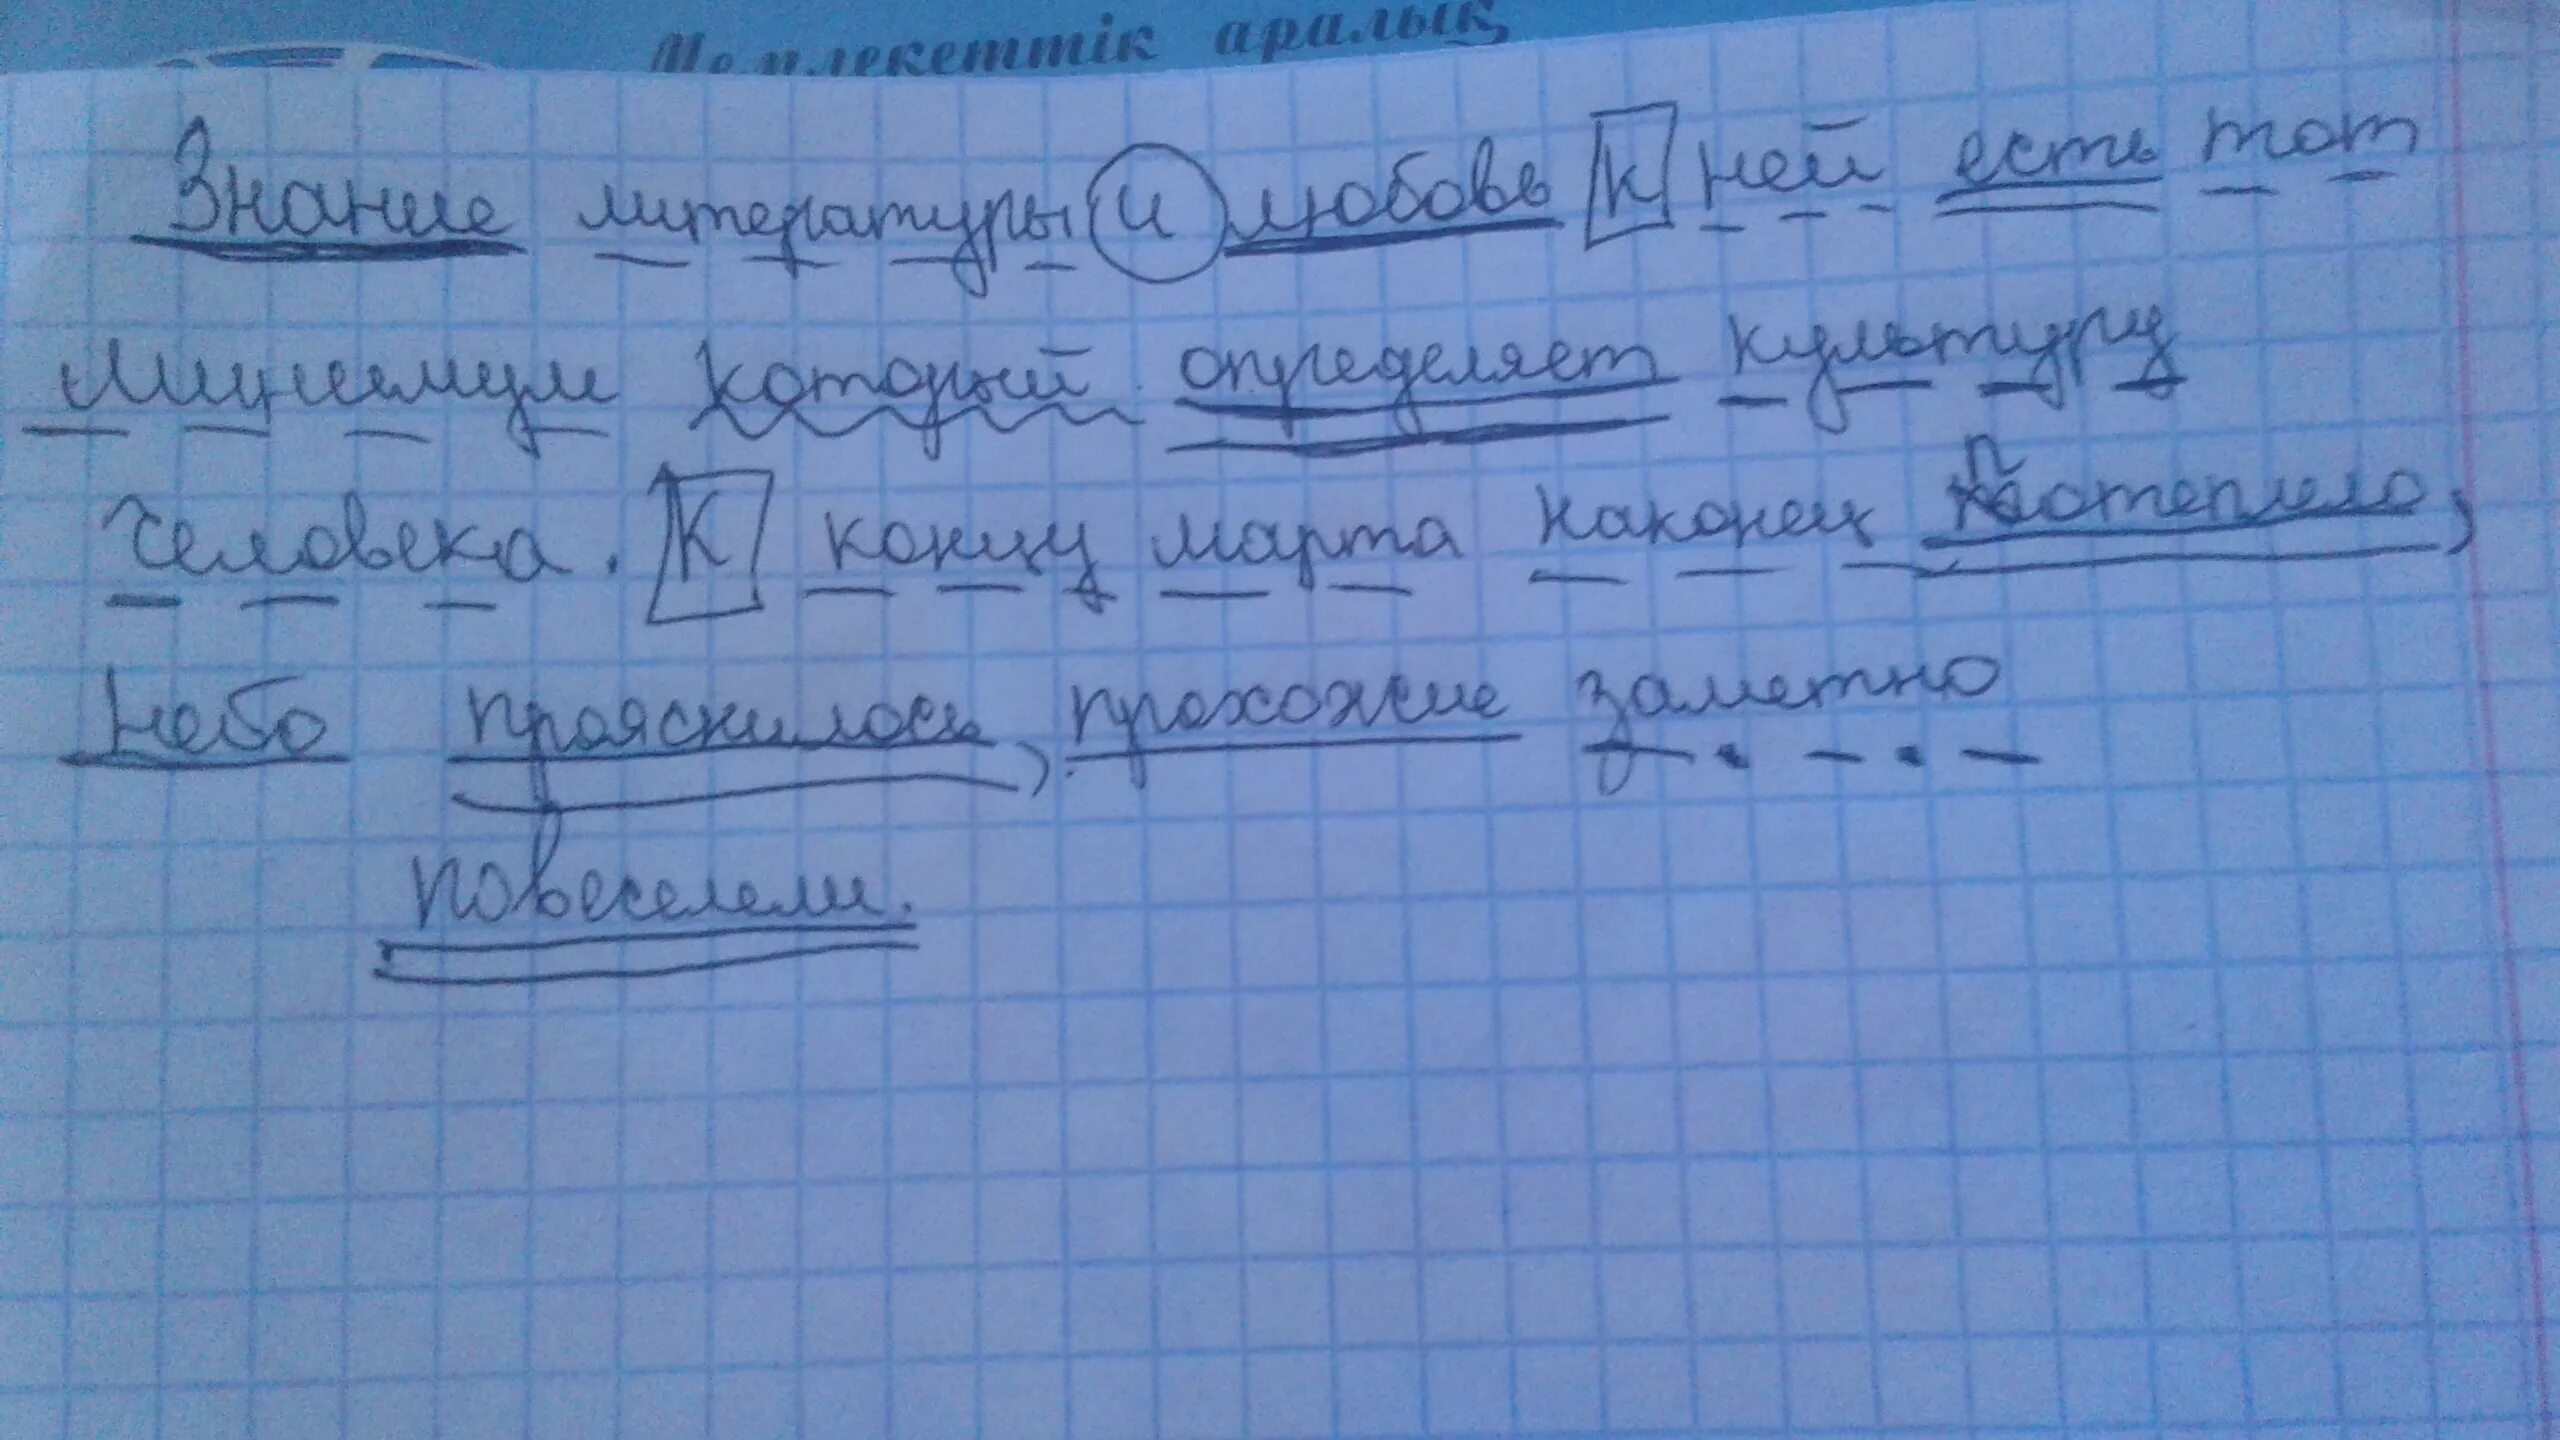 Мемлекеттік аралық
Знание литературы и любовь к ней есть тот
минимум который определяет культуру
человека. К концу марта наконец потеплело,
небо прояснилось, прохожие заметно
повеселели.